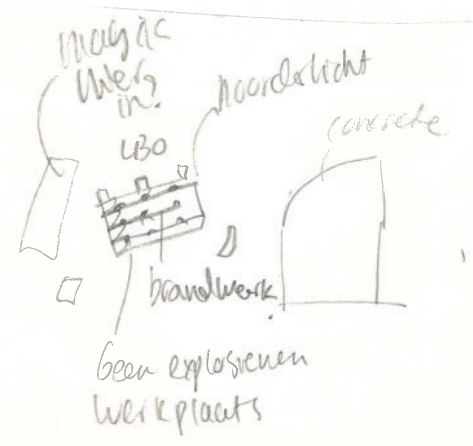 magic
in?
noorderlicht
concrete
brandwerk
Geen explosieven
werkplaats